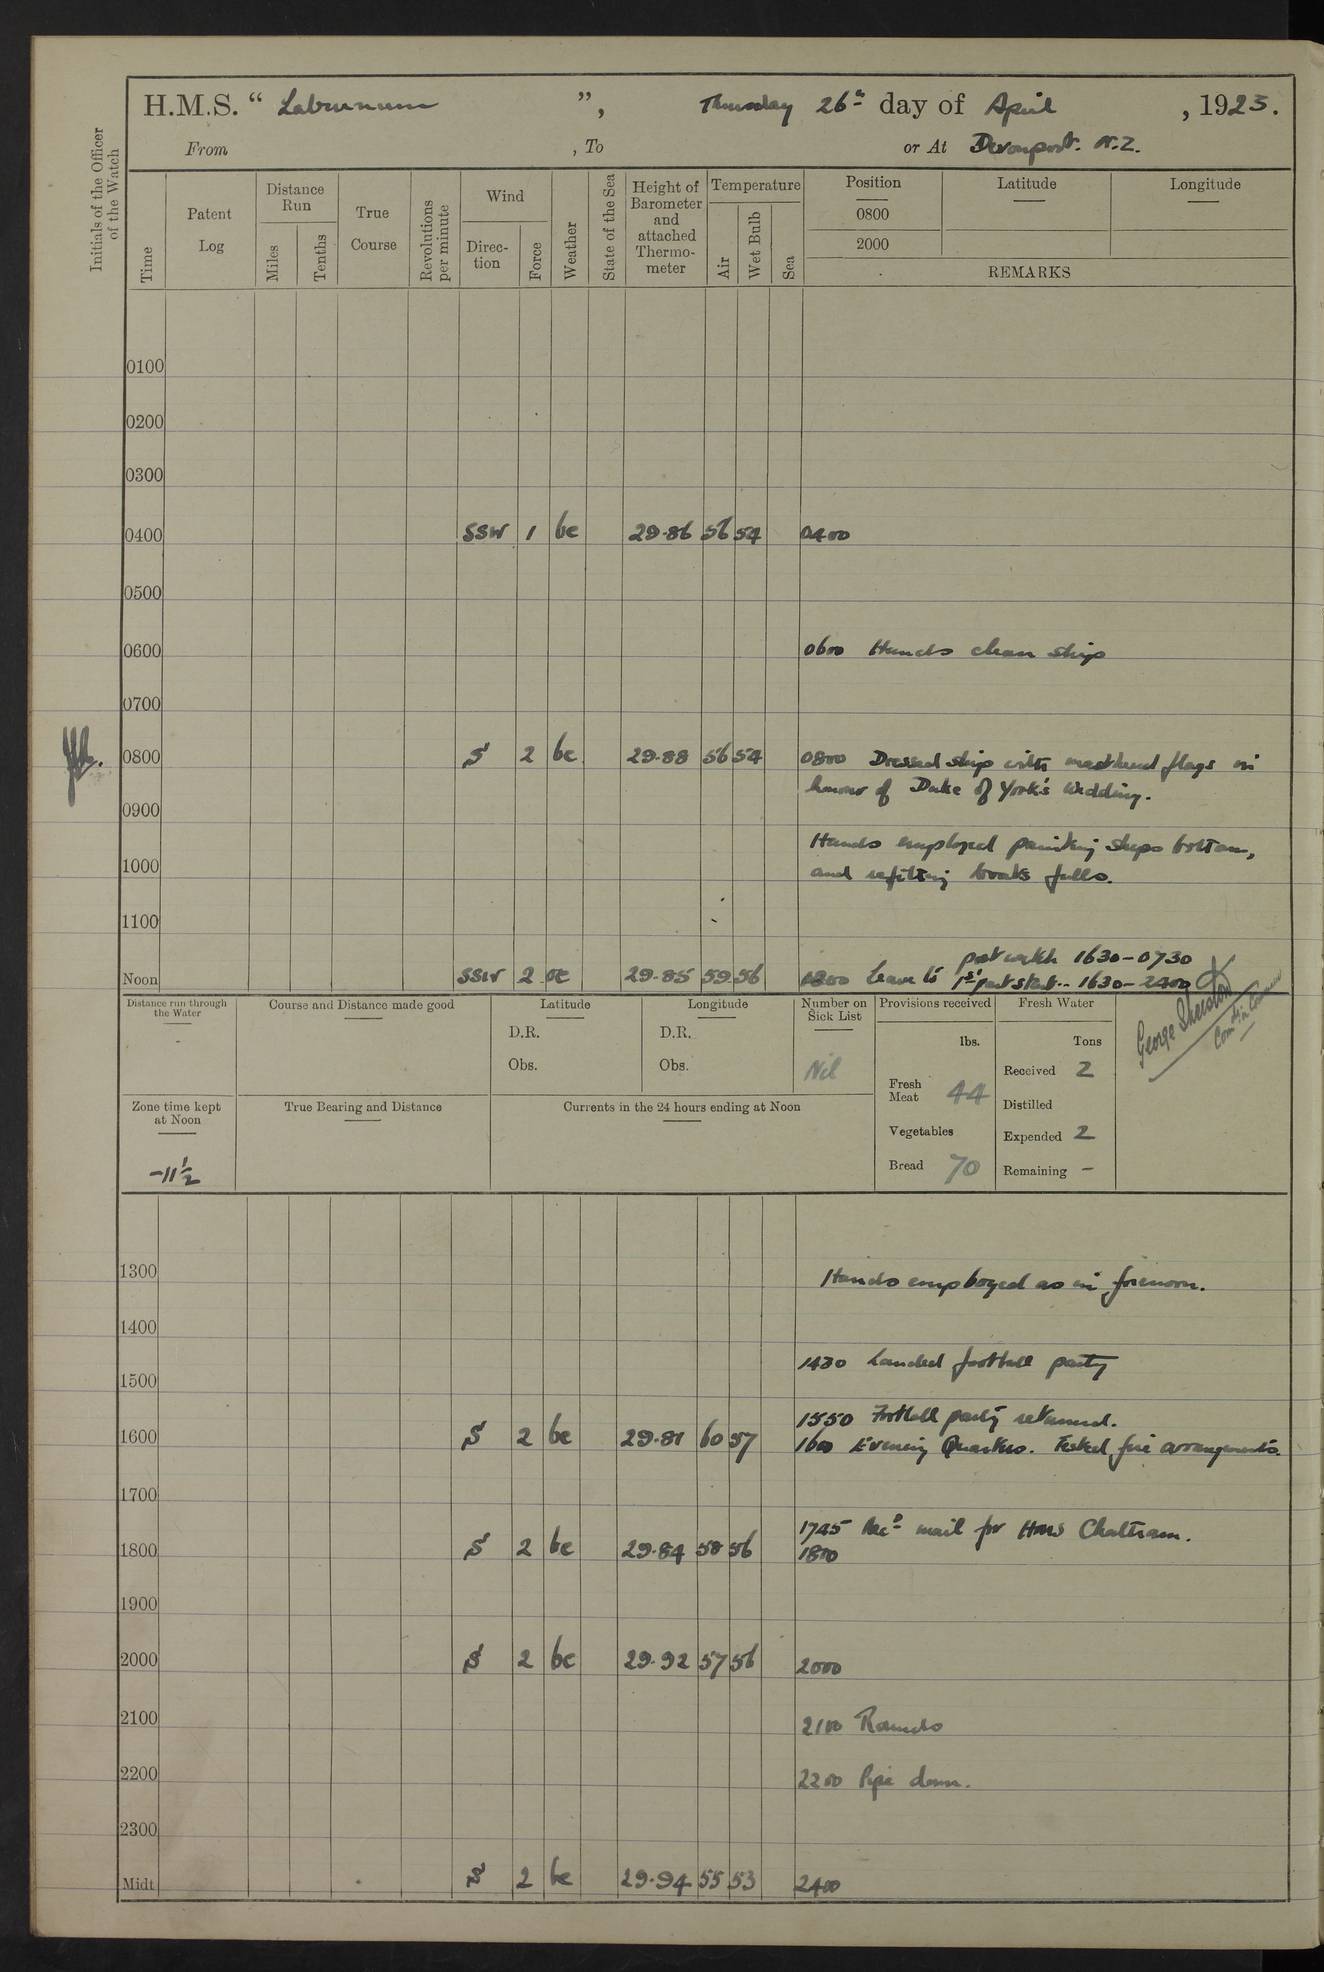 H.M.S. “ Laburnum ”, Thursday 26th day of April , 1923.
From , To or At Devonport. N.Z.
Initials of the Officer of the Watch
Time
Patent Log
Distance Run
Miles
Tenths
True Course
Revolutions per minute
Wind
Direc-tion
Force
Weather
State of the Sea
Height of Barometer and attached Thermo-meter
Temperature
Air
Wet Bulb
Sea
Position
0800
2000
Latitude
Longitude
REMARKS
0100
0200
0300
0400 SSW 1 bc 29.86 56 54 0400
0500
0600 0600 Hands clean ship
0700
0800 S 2 bc 29.88 56 54 0800 Dressed ship with masthead flags in
honour of Duke of York's Wedding.
0900
Hands employed painting ships bottom,
1000 and refitting boats falls.
1100
port watch 1630-0730
Noon SSW 2 bc 29.85 59 56 Leave to 1st part starb.. 1630-2400
Distance run through the Water
Course and Distance made good
Latitude
D.R.
Obs.
Longitude
D.R.
Obs.
Number on Sick List
Nil
Provisions received
lbs.
Fresh Meat 44
Vegetables
Bread 70
Fresh Water
Tons
Received 2
Distilled
Expended 2
Remaining -
George Sherston
Comdr in Command
Zone time kept at Noon
-11 1/2
True Bearing and Distance
Currents in the 24 hours ending at Noon
1300 Hands employed as in forenoon.
1400
1430 Landed football party
1500
1550 Football party returned.
1600 S 2 bc 29.81 60 57 1600 Evening Quarters. Tested fire arrangements.
1700
1745 Recd mail for HMS Chatham.
1800 S 2 bc 29.84 58 56 1800
1900
2000 S 2 bc 29.92 57 56 2000
2100 2100 Rounds
2200 2200 Pipe down.
2300
Midt S 2 bc 29.94 55 53 2400